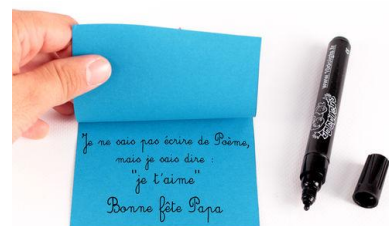 Je ne sais pas écrire de Poème,
mais je sais dire :
"je t'aime"
Bonne fête Papa